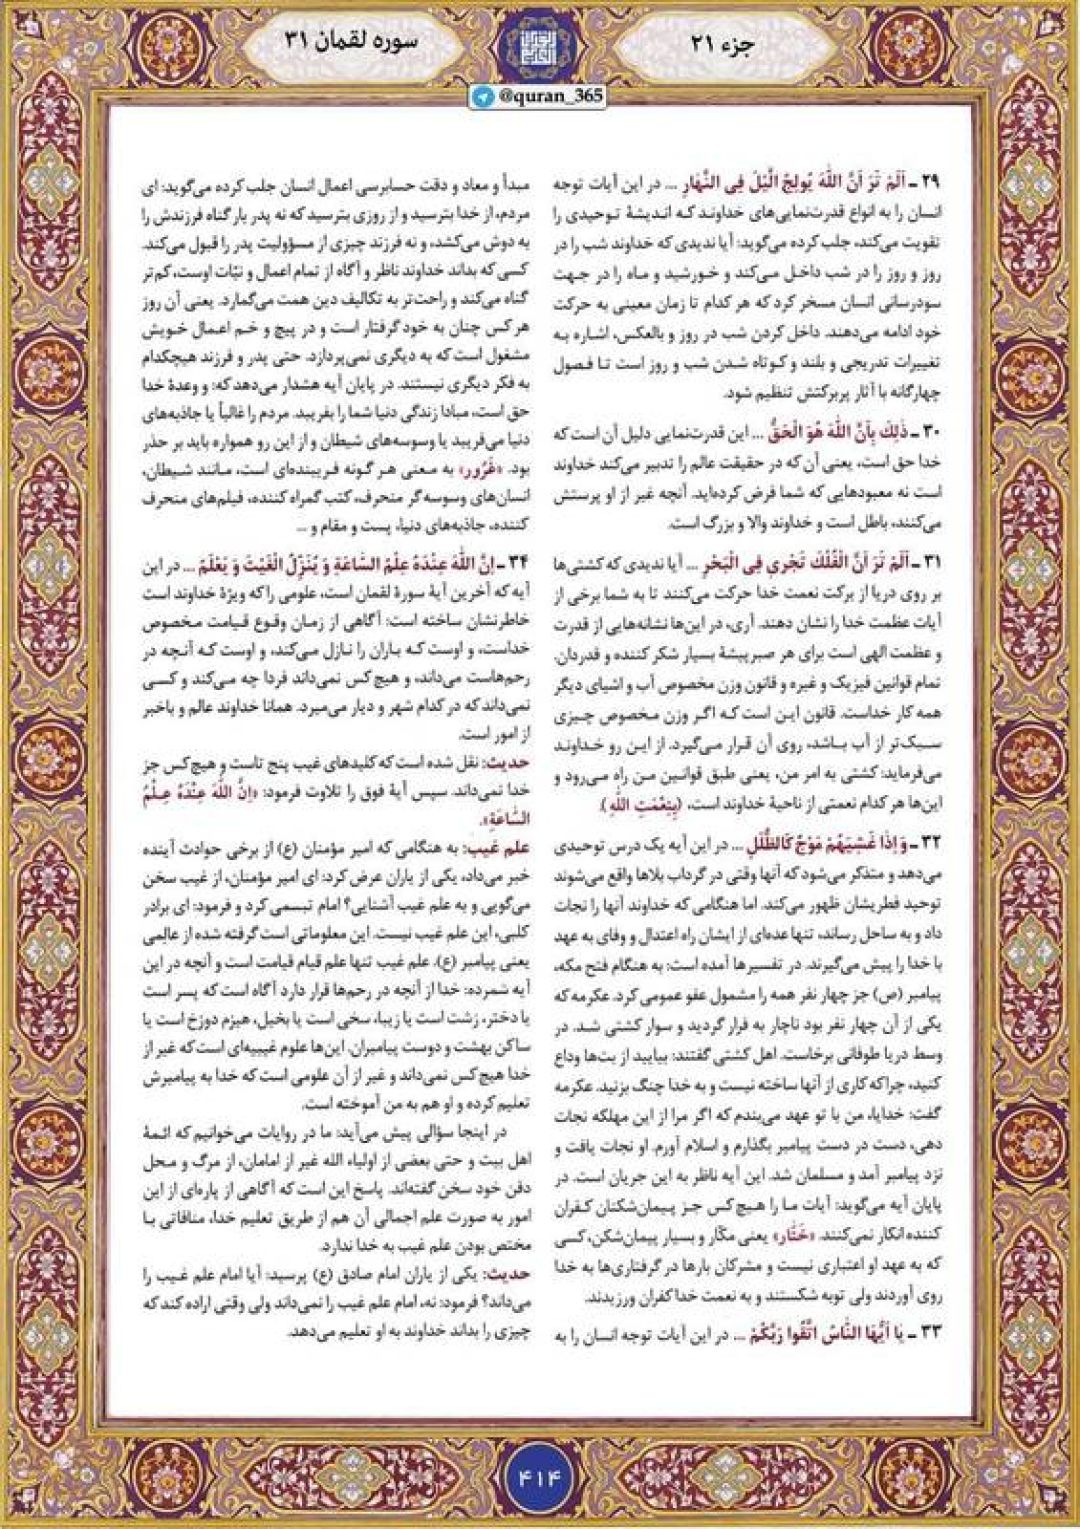 جزء ۲۱
سوره لقمان ۳۱
@quran_365
۲۹ ـ اَلَمْ تَرَ اَنَّ اللّٰهَ يُولِجُ الَّيْلَ فِى النَّهَارِ ... در این آیات توجه
انسان را به انواع قدرت‌نمایی‌های خداوند که اندیشهٔ توحیدی را
تقویت می‌کند، جلب کرده می‌گوید: آیا ندیدی که خداوند شب را در
روز و روز را در شب داخل می‌کند و خورشید و ماه را در جهت
سودرسانی انسان مسخر کرد که هر کدام تا زمان معینی به حرکت
خود ادامه می‌دهند. داخل کردن شب در روز و بالعکس، اشاره به
تغییرات تدریجی و بلند و کوتاه شدن شب و روز است تا فصول
چهارگانه با آثار پربرکتش تنظیم شود.
۳۰ ـ ذٰلِكَ بِاَنَّ اللّٰهَ هُوَ الْحَقُّ ... این قدرت‌نمایی دلیل آن است که
خدا حق است، یعنی آن که در حقیقت عالم را تدبیر می‌کند خداوند
است نه معبودهایی که شما فرض کرده‌اید. آنچه غیر از او پرستش
می‌کنند، باطل است و خداوند والا و بزرگ است.
۳۱ ـ اَلَمْ تَرَ اَنَّ الْفُلْكَ تَجْرِى فِى الْبَحْرِ ... آیا ندیدی که کشتی‌ها
بر روی دریا از برکت نعمت خدا حرکت می‌کنند تا به شما برخی از
آیات عظمت خدا را نشان دهند. آری، در این‌ها نشانه‌هایی از قدرت
و عظمت الهی است برای هر صبرپیشهٔ بسیار شکر کننده و قدردان.
تمام قوانین فیزیک و غیره و قانون وزن مخصوص آب و اشیای دیگر
همه کار خداست. قانون این است که اگر وزن مخصوص چیزی
سبک‌تر از آب باشد، روی آن قرار می‌گیرد. از این رو خداوند
می‌فرماید: کشتی به امر من، یعنی طبق قوانین من راه می‌رود و
این‌ها هر کدام نعمتی از ناحیهٔ خداوند است، (بِنِعْمَتِ اللّٰهِ).
۳۲ ـ وَ اِذَا غَشِيَهُمْ مَوْجٌ كَالظُّلَلِ ... در این آیه یک درس توحیدی
می‌دهد و متذکر می‌شود که آنها وقتی در گرداب بلاها واقع می‌شوند
توحید فطریشان ظهور می‌کند. اما هنگامی که خداوند آنها را نجات
داد و به ساحل رساند، تنها عده‌ای از ایشان راه اعتدال و وفای به عهد
با خدا را پیش می‌گیرند. در تفسیرها آمده است: به هنگام فتح مکه،
پیامبر (ص) جز چهار نفر همه را مشمول عفو عمومی کرد. عکرمه که
یکی از آن چهار نفر بود ناچار به فرار گردید و سوار کشتی شد. در
وسط دریا طوفانی برخاست. اهل کشتی گفتند: بیایید از بت‌ها وداع
کنید، چراکه کاری از آنها ساخته نیست و به خدا چنگ بزنید. عکرمه
گفت: خدایا، من با تو عهد می‌بندم که اگر مرا از این مهلکه نجات
دهی، دست در دست پیامبر بگذارم و اسلام آورم. او نجات یافت و
نزد پیامبر آمد و مسلمان شد. این آیه ناظر به این جریان است. در
پایان آیه می‌گوید: آیات ما را هیچ کس جز پیمان‌شکنان کفران
کننده انکار نمی‌کنند. «خَتّٰار» یعنی مکّار و بسیار پیمان‌شکن، کسی
که به عهد او اعتباری نیست و مشرکان بارها در گرفتاری‌ها به خدا
روی آوردند ولی توبه شکستند و به نعمت خدا کفران ورزیدند.
۳۳ ـ يَا اَيُّهَا النَّاسُ اتَّقُوا رَبَّكُمْ ... در این آیات توجه انسان را به
مبدأ و معاد و دقت حسابرسی اعمال انسان جلب کرده می‌گوید: ای
مردم، از خدا بترسید و از روزی بترسید که نه پدر بار گناه فرزندش را
به دوش می‌کشد، و نه فرزند چیزی از مسؤولیت پدر را قبول می‌کند.
کسی که بداند خداوند ناظر و آگاه از تمام اعمال و نیّات اوست، کم‌تر
گناه می‌کند و راحت‌تر به تکالیف دین همت می‌گمارد. یعنی آن روز
هر کس چنان به خود گرفتار است و در پیچ و خم اعمال خویش
مشغول است که به دیگری نمی‌پردازد. حتی پدر و فرزند هیچکدام
به فکر دیگری نیستند. در پایان آیه هشدار می‌دهد که: و وعدهٔ خدا
حق است، مبادا زندگی دنیا شما را بفریبد. مردم را غالباً یا جاذبه‌های
دنیا می‌فریبد یا وسوسه‌های شیطان و از این رو همواره باید بر حذر
بود. «غَرُور» به معنی هر گونه فریبنده‌ای است، مانند شیطان،
انسان‌های وسوسه گر منحرف، کتب گمراه کننده، فیلم‌های منحرف
کننده، جاذبه‌های دنیا، پست و مقام و ...
۳۴ ـ اِنَّ اللّٰهَ عِنْدَهُ عِلْمُ السَّاعَةِ وَ يُنَزِّلُ الْغَيْثَ وَ يَعْلَمُ ... در این
آیه که آخرین آیهٔ سورهٔ لقمان است، علومی را که ویژهٔ خداوند است
خاطرنشان ساخته است: آگاهی از زمان وقوع قیامت مخصوص
خداست، و اوست که باران را نازل می‌کند، و اوست که آنچه در
رحم‌هاست می‌داند، و هیچ کس نمی‌داند فردا چه می‌کند و کسی
نمی‌داند که در کدام شهر و دیار می‌میرد. همانا خداوند عالم و باخبر
از امور است.
حدیث: نقل شده است که کلیدهای غیب پنج تاست و هیچ کس جز
خدا نمی‌داند. سپس آیهٔ فوق را تلاوت فرمود: «اِنَّ اللّٰهَ عِنْدَهُ عِلْمُ
السَّاعَةِ».
علم غیب: به هنگامی که امیر مؤمنان (ع) از برخی حوادث آینده
خبر می‌داد، یکی از یاران عرض کرد: ای امیر مؤمنان، از غیب سخن
می‌گویی و به علم غیب آشنایی؟ امام تبسمی کرد و فرمود: ای برادر
کلبی، این علم غیب نیست. این معلوماتی است گرفته شده از عالِمی
یعنی پیامبر (ع). علم غیب تنها علم قیام قیامت است و آنچه در این
آیه شمرده: خدا از آنچه در رحم‌ها قرار دارد آگاه است که پسر است
یا دختر، زشت است یا زیبا، سخی است یا بخیل، هیزم دوزخ است یا
ساکن بهشت و دوست پیامبران. این‌ها علوم غیبیه‌ای است که غیر از
خدا هیچ کس نمی‌داند و غیر از آن علومی است که خدا به پیامبرش
تعلیم کرده و او هم به من آموخته است.
در اینجا سؤالی پیش می‌آید: ما در روایات می‌خوانیم که ائمهٔ
اهل بیت و حتی بعضی از اولیاء الله غیر از امامان، از مرگ و محل
دفن خود سخن گفته‌اند. پاسخ این است که آگاهی از پاره‌ای از این
امور به صورت علم اجمالی آن هم از طریق تعلیم خدا، منافاتی با
مختص بودن علم غیب به خدا ندارد.
حدیث: یکی از یاران امام صادق (ع) پرسید: آیا امام علم غیب را
می‌داند؟ فرمود: نه، امام علم غیب را نمی‌داند ولی وقتی اراده کند که
چیزی را بداند خداوند به او تعلیم می‌دهد.
۴۱۴